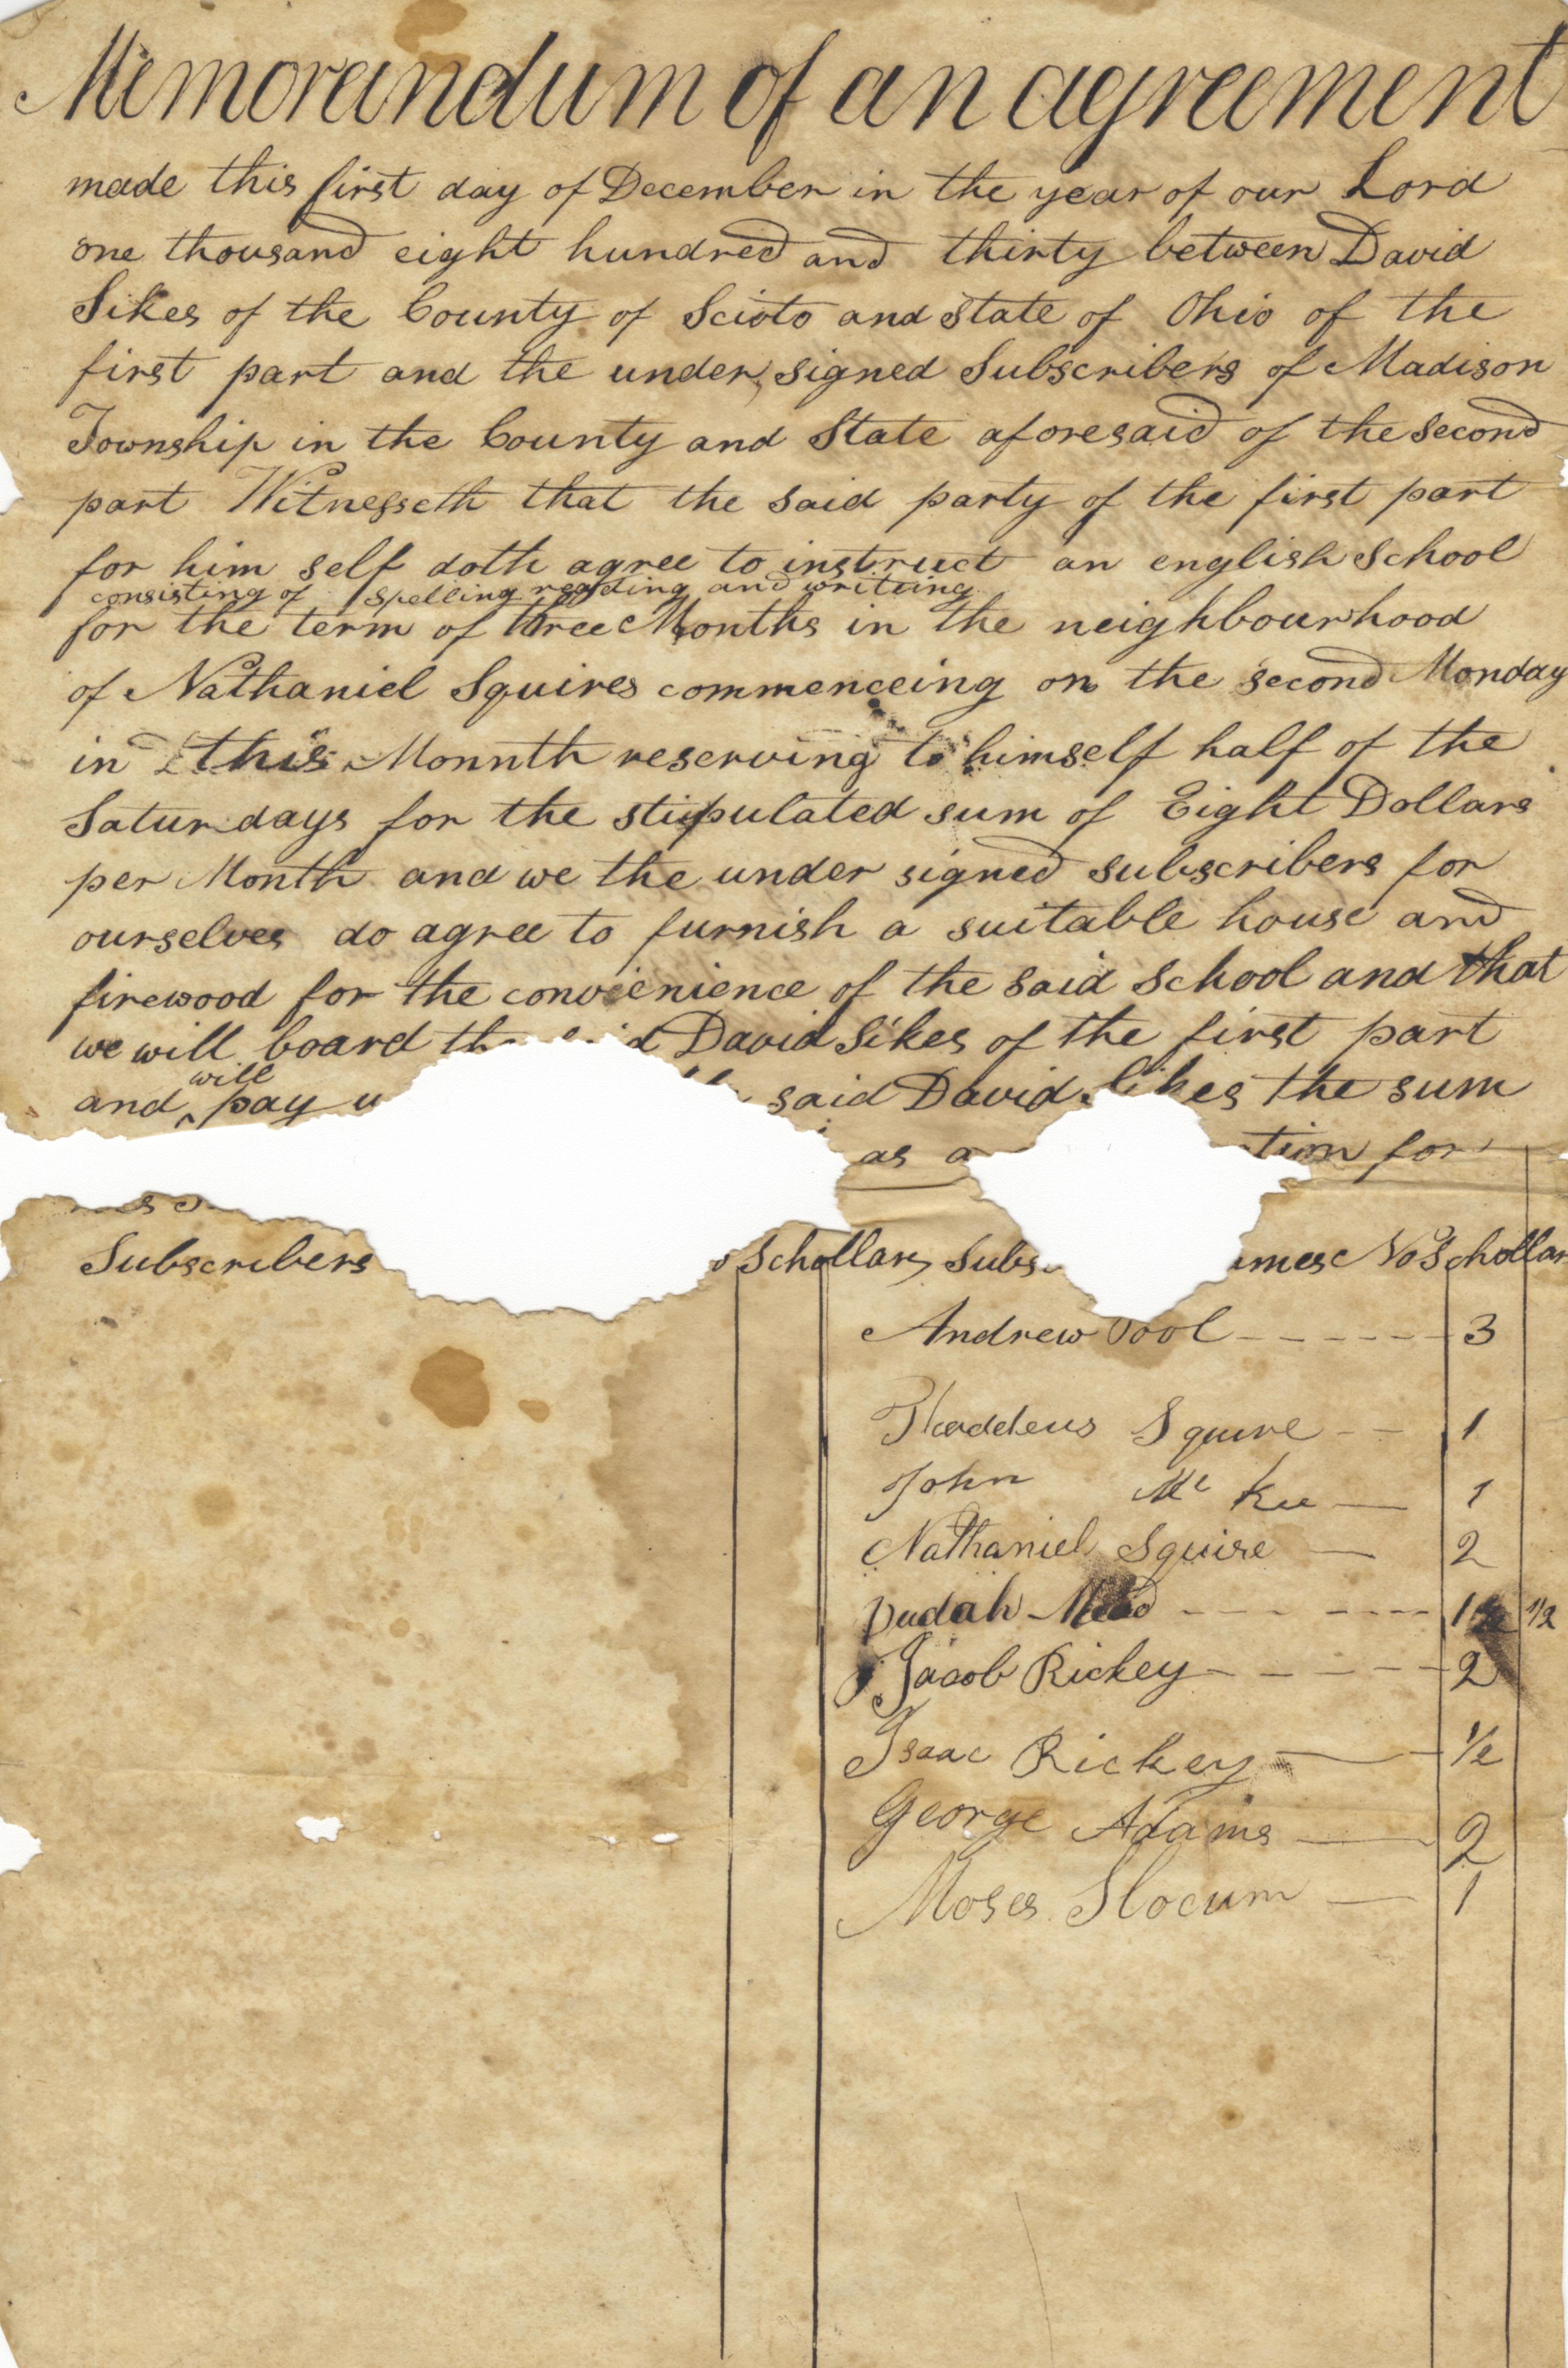 Memorandum of an agreement
made this first day of December in the year of our Lord
one thousand eight hundred and thirty between David
Sikes of the County of Scioto and State of Ohio of the
first part and the under signed Subscribers of Madison
Township in the County and State aforesaid of the second
part Witnesseth that the said party of the first part
for him self doth agree to instruct an english School
consisting of Spelling reading and writeing
for the term of three Months in the neighbourhood
of Nathaniel Squires commenceing on the second Monday
in this Monnth reserving to himself half of the
Saturdays for the stipulated sum of Eight Dollars
per Month and we the under signed subscribers for
ourselves do agree to furnish a suitable house and
firewood for the convienience of the said School and that
we will board David Sikes of the first part
will
and pay said David Sikes the sum
as a for
Subscribers Schollars No Schollars
Andrew Pool 3
Thaddeus Squire 1
John Mc Kee 1
Nathaniel Squire 2
Judah 1 1/2
Jacob Rickey 2
Isaac Rickey 1/2
George Adams 2
Moses Slocum 1